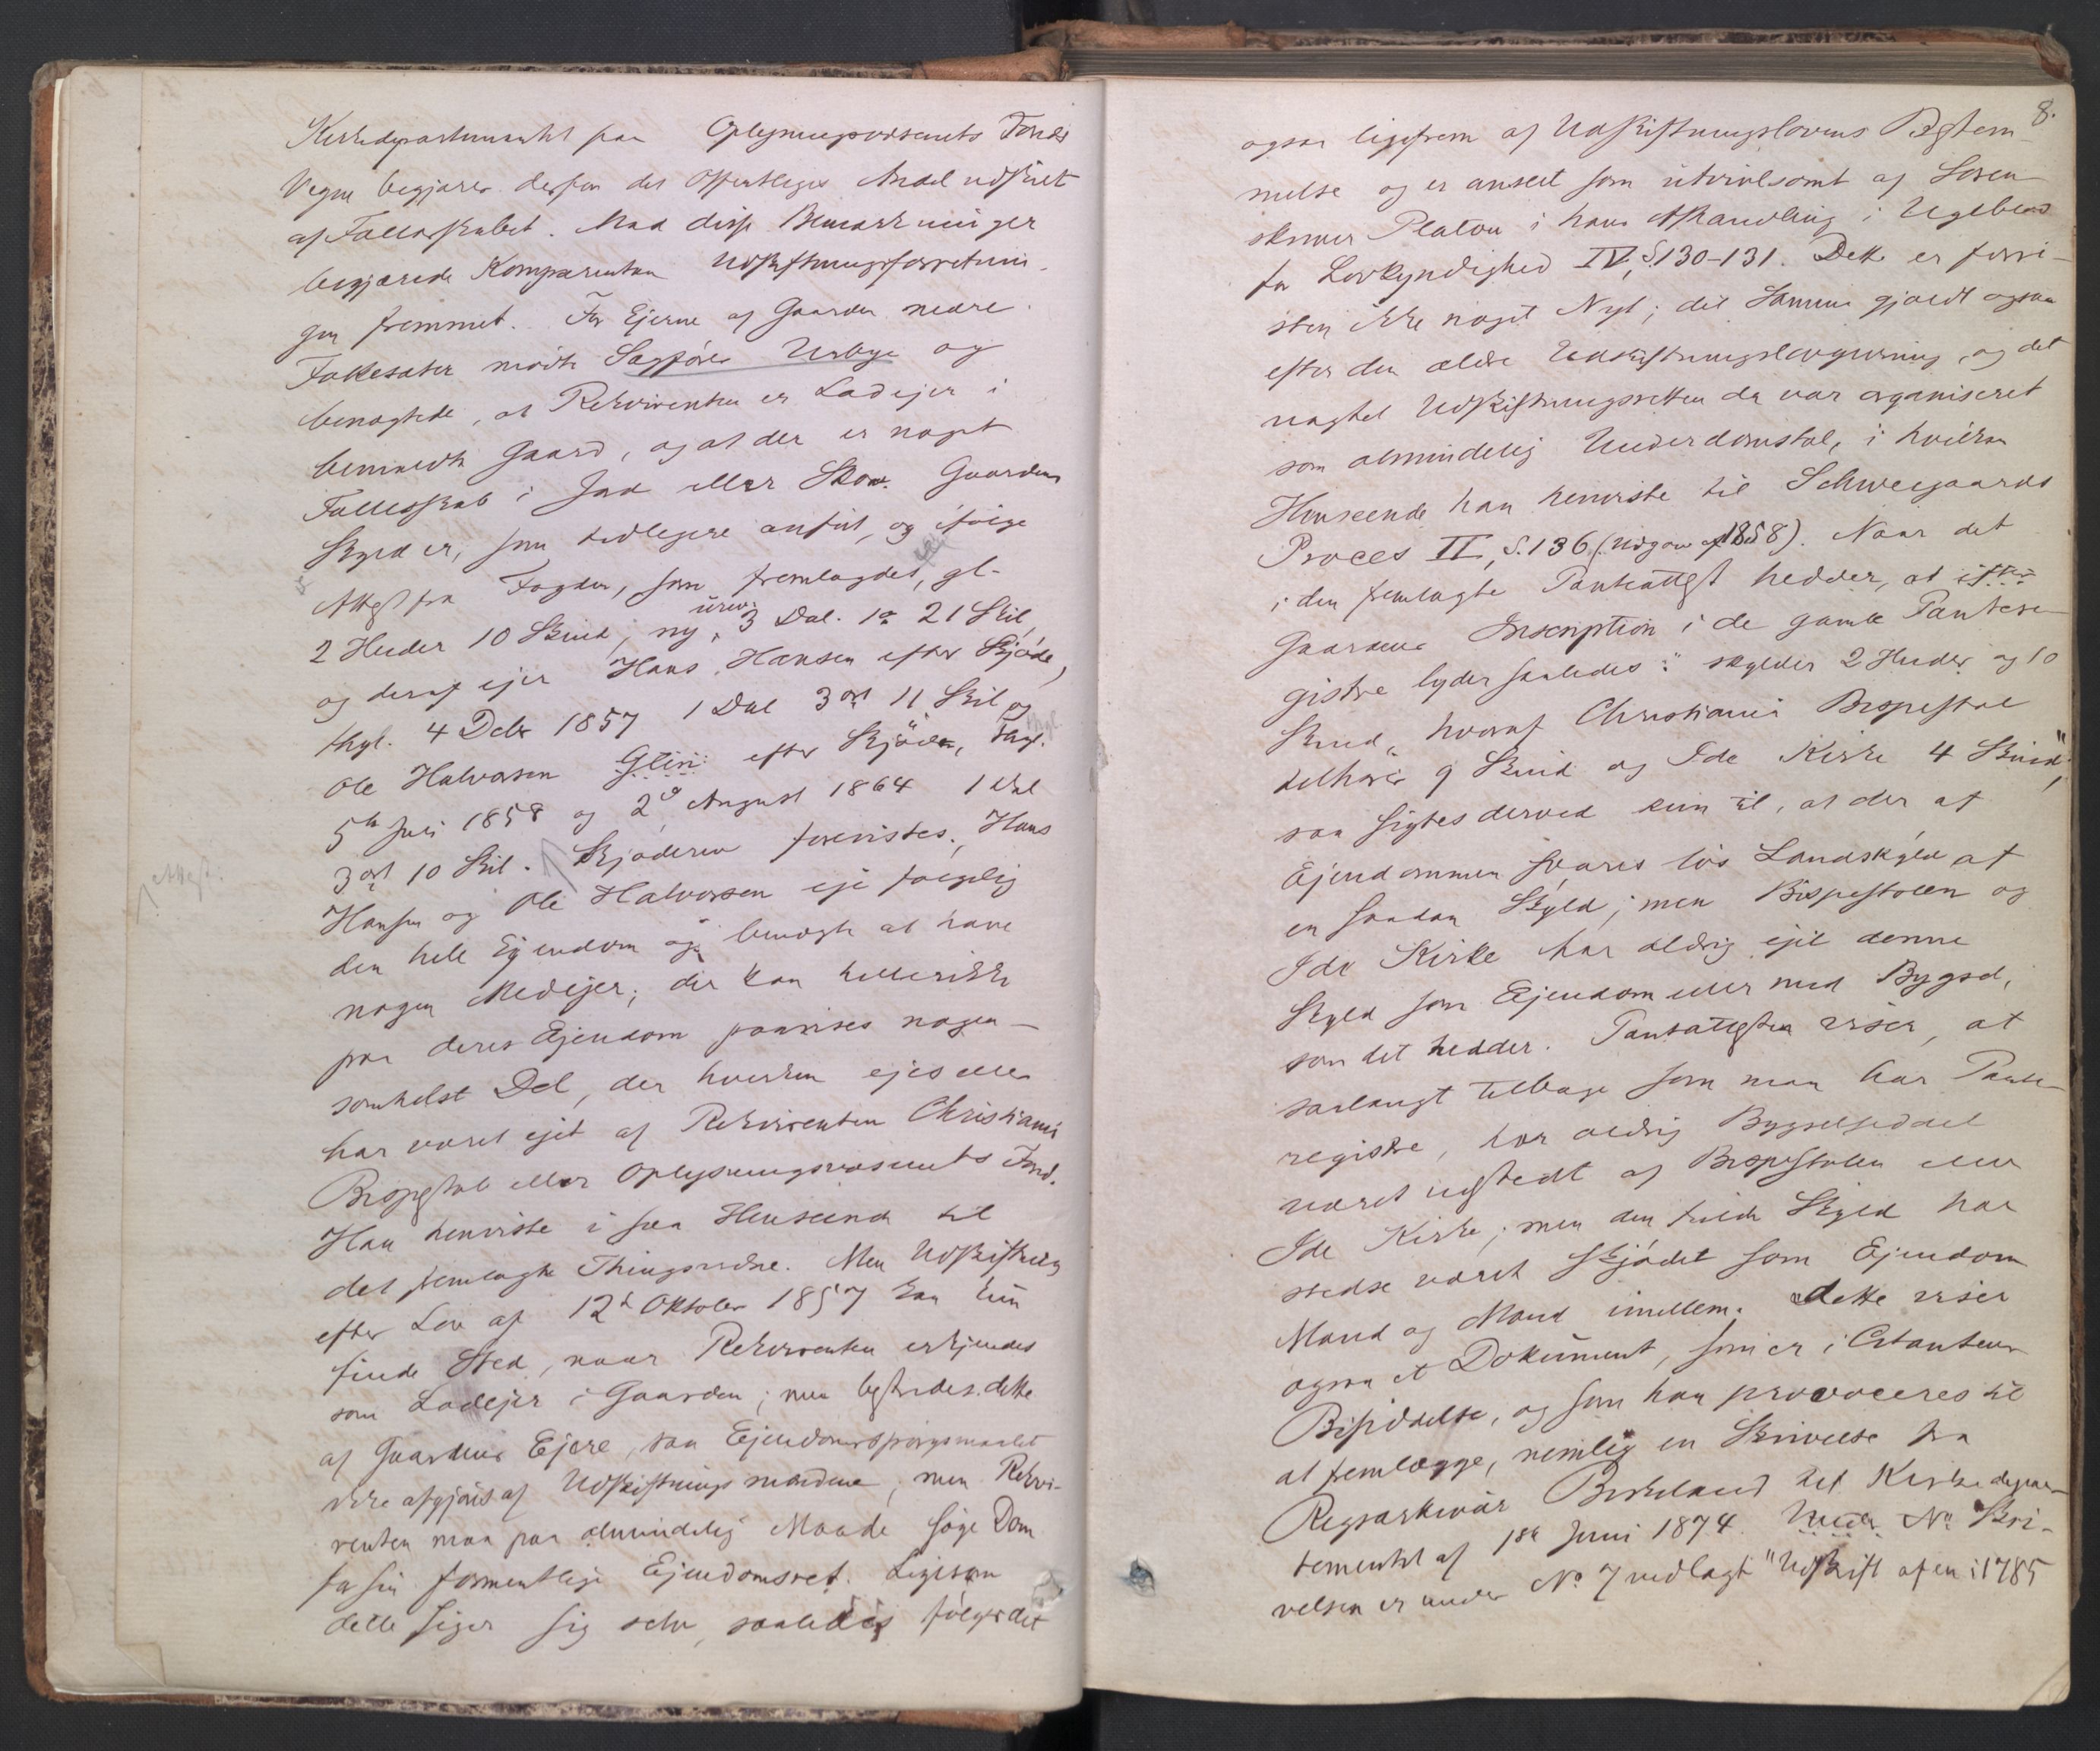 Kirkedepartementet paa Oplysningsvæsenets Fonds
Vegne begjærer derfor det Offentliges Andel udskiftet
af Fællesskabet. Med disse Bemærkninger
begjærede Komparenten Udskiftningsforretnin-
gen fremmet. For Ejerne af Gaarden nedre
Folkesæter mødte Sagfører Urbye og
benægtede, at Rekvirenten er Lodejer i
benævnte Gaard, og at der er noget
Fællesskab i Jord eller Skov. Gaardens
Skyld er, som tidligere anført, og ifølge
Attest fra Fogden, som fremlagdes, gl.
2 Huder 10 Skind, ny, urev. 3 Dal. 1 ort 21 Skil,
og deraf ejer Hans Hansen efter Skjøde,
thgl. 4 Debr 1857 1 Dal 3 ort 11 Skil og
Ole Halvorsen Glenne efter Skjøder, thgl.
5te Juli 1858 og 2d August 1864 1 Dal
3 ort 10 Skil. Skjøderne forevistes. Hans
attest.
Hansen og Ole Halvorsen eje følgelig
den hele Ejendom og benægte at have
nogen Medejer; der kan heller ikke
paa deres Ejendom paavises nogen-
somhelst Del, der hverken ejes eller
har været ejet af Rekvirenten Christiania
Bispestol eller Oplysningsvæsenets Fond.
Han henviste i saa Henseende til
det fremlagte Thingsvidne. Men Udskiftning
efter Lov af 12te Oktober 1857 kan kun
finde Sted, naar Rekvirenten erkjendes
som Lodejer i Gaarden; men bestrides dette
af Gaardens Ejere, saa Ejendomsspørgsmaalet
ikke afgjøres af Udskiftningsmændene, men Rekvi-
renten maa paa almindelig Maade søge Dom
for sin formentlige Ejendomsret. Ligesom
dette siger sig selv, saaledes følger det
8.
ogsaa ligefrem af Udskiftningslovens Bestem-
melse og er anseet som utvivlsomt af Soren-
skriver Platou i hans Afhandling i Ugeblad
for Lovkyndighed IV, S. 130-131. Dette er forre-
sten ikke noget Nyt; det Samme gjaldt ogsaa
efter den ældre Udskiftningslovgivning, og det
uagtet Udskiftningsretten da var organiseret
som almindelig Underdomstol, i hvilken
Henseende han henviste til Schweigaards
Proces II, S. 136 (Udgave af 1858). Naar det
i den fremlagte Panteattest hedder, at efter
Gaardens Inscription i de gamle Pantere-
gistre lyder saaledes: "skylder 2 Huder og 10
Skind, hvoraf Christiania Bispestol
tilhører 9 Skind og Ide Kirke 4 Skind",
saa sigtes derved kun til, at der af
Ejendommen svares løs Landskyld af
en saadan Skyld; men Bispestolen og
Ide Kirke har aldrig ejet denne
Skyld som Ejendom eller med Bygsel,
som det hedder. Panteattesten viser, at
saalangt tilbage som man har Pante-
registre, har aldrig Bygselseddel
været udstedt af Bispestolen eller
Ide Kirke; men den fulde Skyld har
stedse været skjødet som Ejendom
Mand og Mand imellem. Dette viser
ogsaa et Dokument, som er i Citantens
Besiddelse, og som han provoceres til
at fremlægge, nemlig en Skrivelse fra
Rigsarkivar Birkeland til Kirkedepar-
tementet af 18de Juni 1874. Under No Skri-
velsen er under No 7 vedlagt "Udskrift af en i 1785